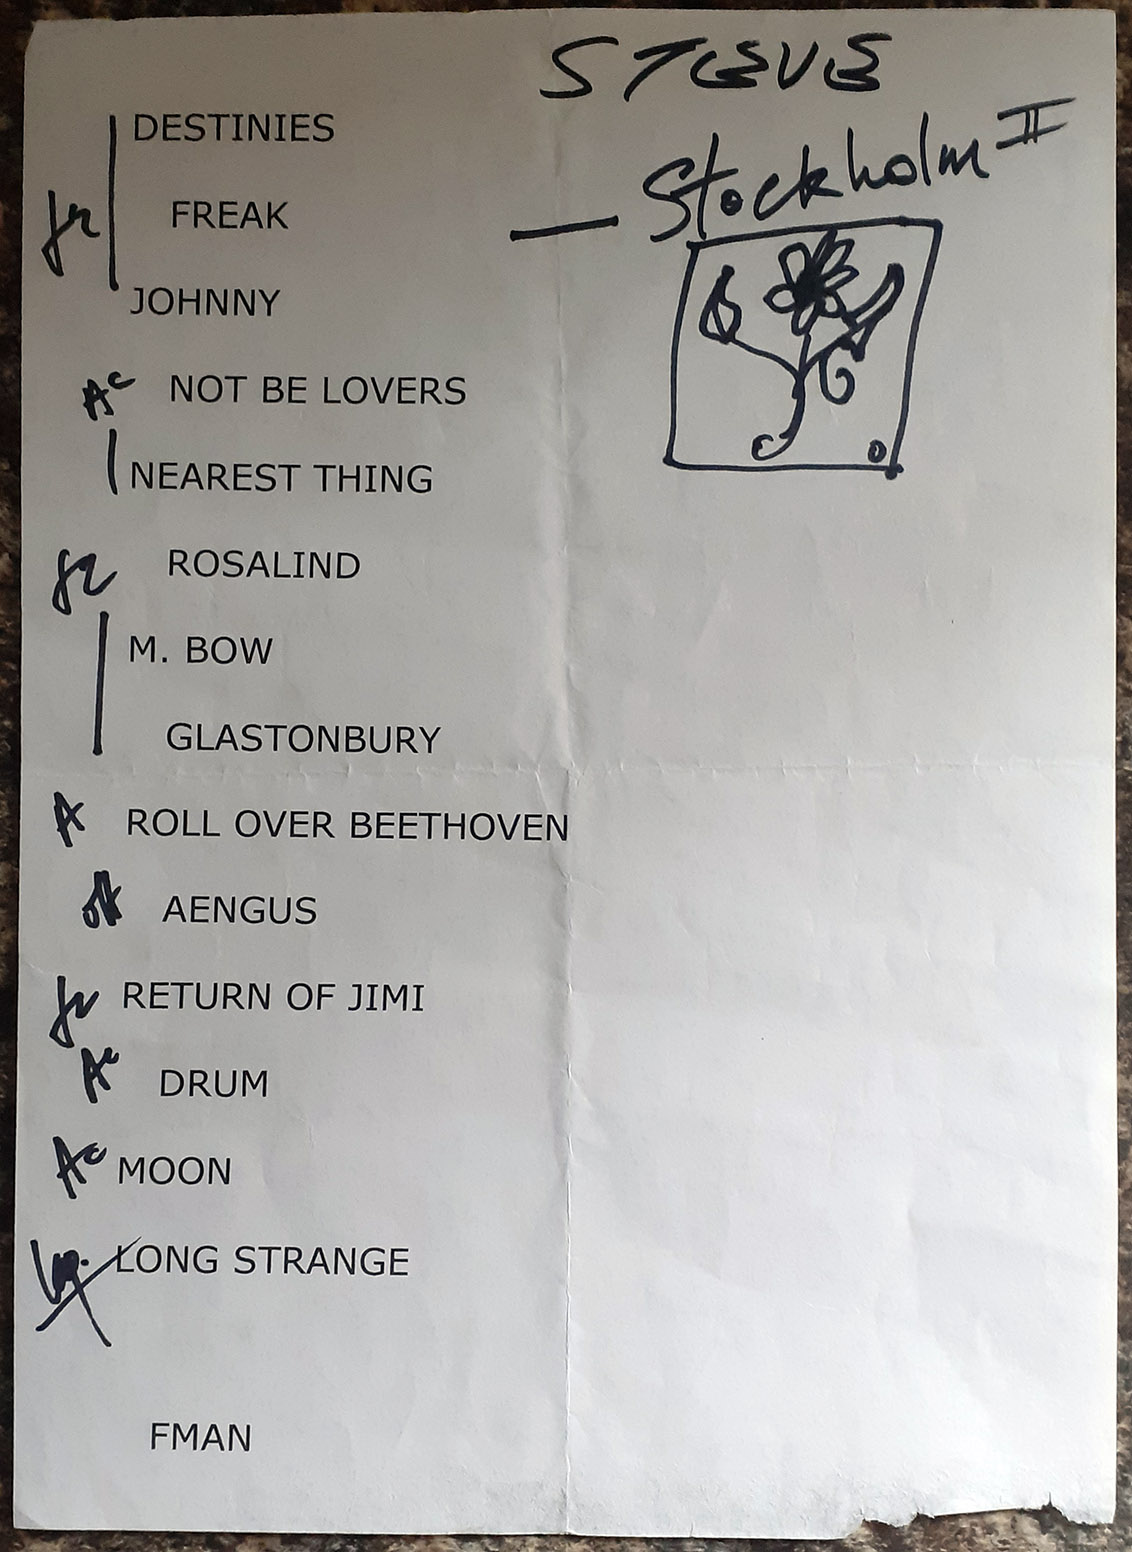 STEVE
— Stockholm II
DESTINIES
FREAK
JOHNNY
Ac NOT BE LOVERS
NEAREST THING
ROSALIND
M. BOW
GLASTONBURY
A ROLL OVER BEETHOVEN
AENGUS
RETURN OF JIMI
Ac DRUM
Ac MOON
LONG STRANGE
FMAN